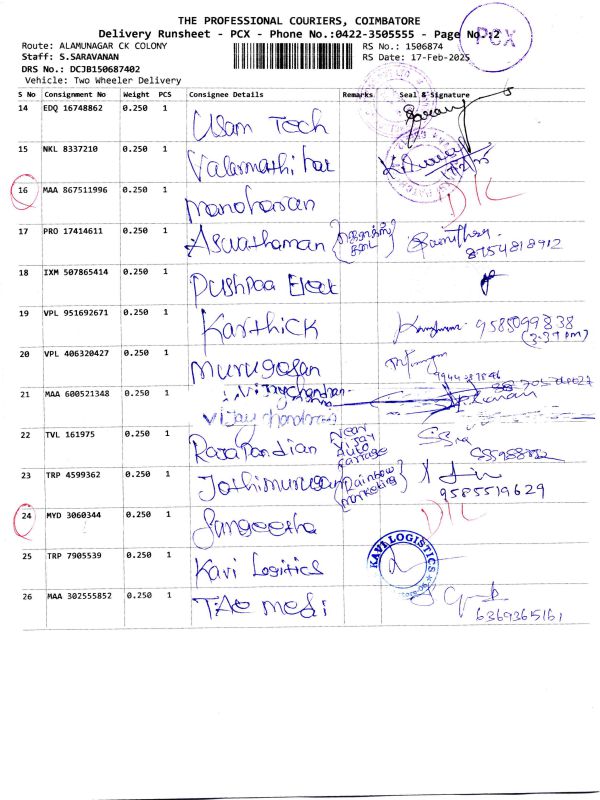 THE PROFESSIONAL COURIERS, COIMBATORE
Delivery Runsheet - PCX - Phone No.:0422-3505555 - Page No.:2
PCX
Route: ALAMUNAGAR CK COLONY RS No.: 1506874
Staff: S.SARAVANAN RS Date: 17-Feb-2025
DRS No.: DCJB150687402
Vehicle: Two Wheeler Delivery
S No Consignment No Weight PCS Consignee Details Remarks Seal & Signature
14 EDQ 16748862 0.250 1 Usam Tech
15 NKL 8337210 0.250 1 Valarmathi
16 MAA 867511996 0.250 1 Manoharan D/L
17 PRO 17414611 0.250 1 Aswathaman 8754818912
18 IXM 507865414 0.250 1 Pushpaa Elect
19 VPL 951692671 0.250 1 Karthick 9585099838
(3.37 pm)
20 VPL 406320427 0.250 1 Murugesan
21 MAA 600521348 0.250 1 Vijaychandran
Vijay chandran
22 TVL 161975 0.250 1 Rasapandian Near Vijay Auto Garrage
23 TRP 4599362 0.250 1 Jothimurugan (Rainbow Marketing) 9585519629
24 MYD 3060344 0.250 1 Sangeetha D/L
25 TRP 7905539 0.250 1 Kavi Logitics KAVI LOGISTICS
26 MAA 302555852 0.250 1 TAO Medi 6369365161